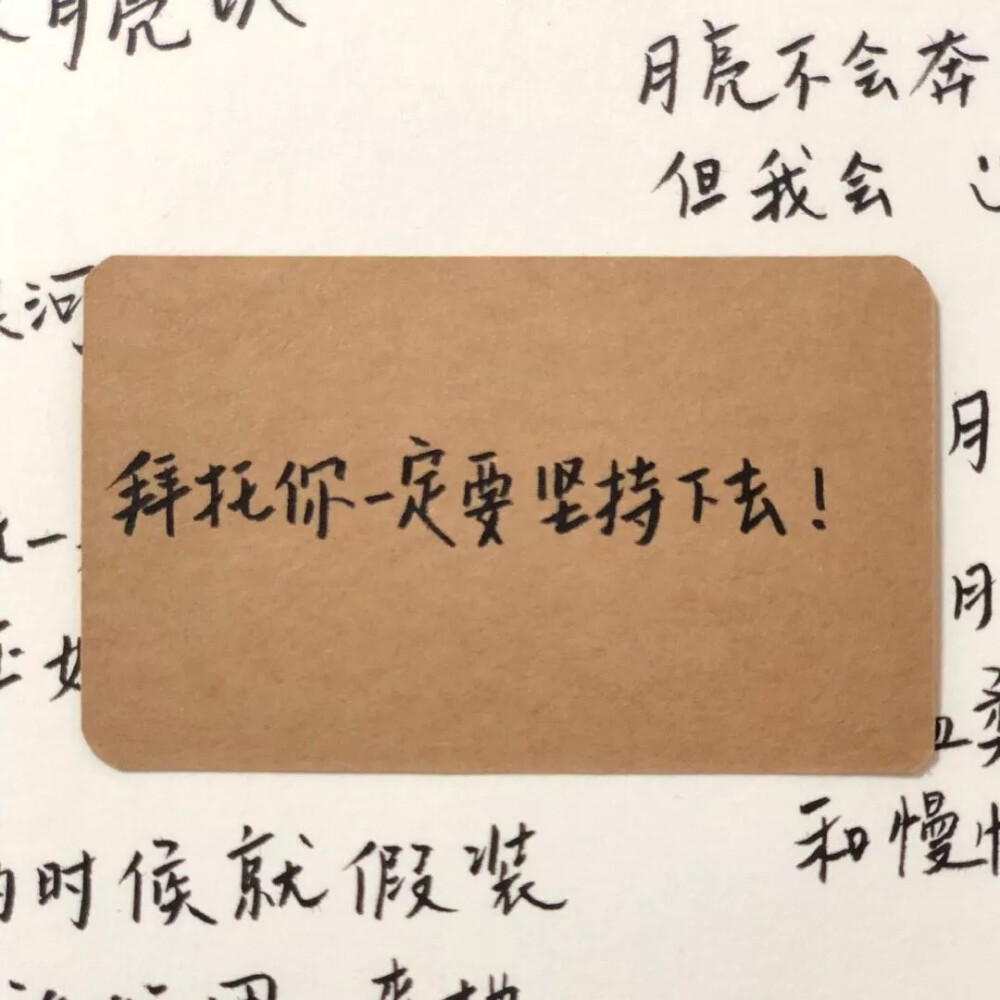 月亮
月亮不会奔
但我会
河
月
拜托你一定要坚持下去！
一
月
和慢慢
的时候就假装